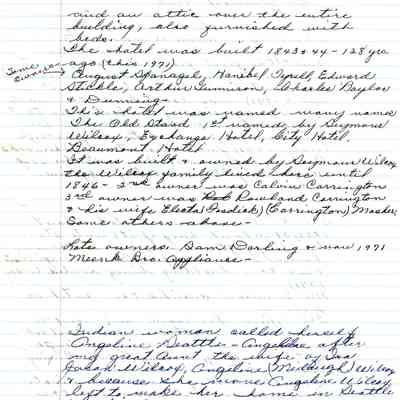 and an attic over the entire
building, also furnished with
beds.
The hotel was built 1843 & 44 - 128 yrs
ago (this 1971)
Some owners
August Spanagel, Hanibel Tyrell Edward
Stickle, Arthur Gunnison, Charles Baylor
& Dunning -
This hotel was named many names
The Old Stand 1st named by Seymour
Wilcox, Exchange Hotel, City Hotel.
Beaumont Hotel
It was built & owned by Seymour Wilcox
the Wilcox family lived here until
1846 - 2nd owner was Calvin Carrington
3rd owner was Rowland Carrington
& his wife Electa (Fosdick) (Carrington) Mosher,
Some others above -
Late owners. Sam Dorling & now 1971
Meenk Bro. appliance -
Indian woman called herself
Angeline Seattle - Angeline after
my great Aunt the wife of Ira
Jason Wilcox, Angeline Wilcox
& because she Angeline Wilcox
left to make her home in Seattle